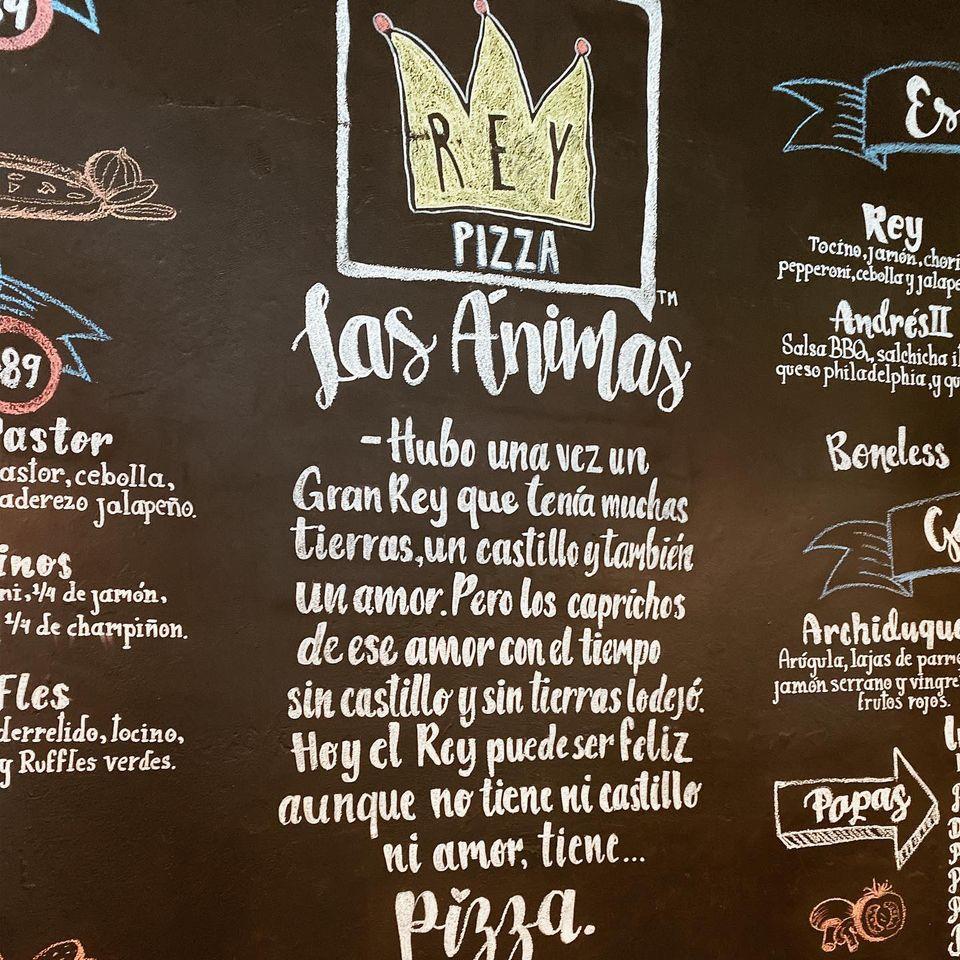 89
Pastor
pastor, cebolla,
aderezo jalapeño.
1/4 de jamón,
1/4 de champiñon.
derretido, tocino,
y Ruffles verdes.
REY
PIZZA
TM
Las Ánimas
-Hubo una vez un
Gran Rey que tenía muchas
tierras, un castillo y también
un amor. Pero los caprichos
de ese amor con el tiempo
sin castillo y sin tierras lo dejó.
Hoy el Rey puede ser feliz
aunque no tiene ni castillo
ni amor, tiene...
pizza.
Es
Rey
Tocino, jamón, chori
pepperoni, cebolla y jalape
Andrés II
Salsa BBQ, salchicha
queso philadelphia, y qu
Boneless
Archiduque
Arúgula, lajas de parm
jamón serrano y vingre
frutos rojos.
Papas